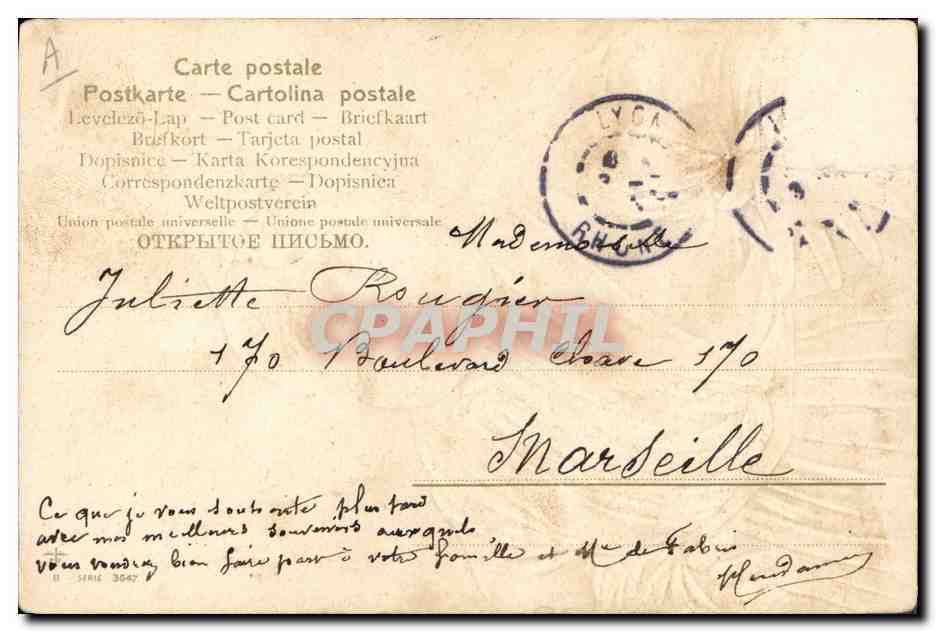 A
Carte postale
Postkarte — Cartolina postale
Levelező-Lap — Post card — Briefkaart
Brefkort — Tarjeta postal
Dopisnice — Karta Korespondencyjna
Correspondenzkarte — Dopisnica
Weltpostverein
Union postale universelle — Unione postale universale
ОТКРЫТОЕ ПИСЬМО.
LYON
RHONE
Mademoiselle
Juliette Rougier
CPAPHIL
170 Boulevard Chave 170
Marseille
Ce que je vous souhaite plus tard
avec mes meilleurs souvenirs auxquels
vous voudrez bien faire part à votre famille et Me de Fabris
B SERIE 3647